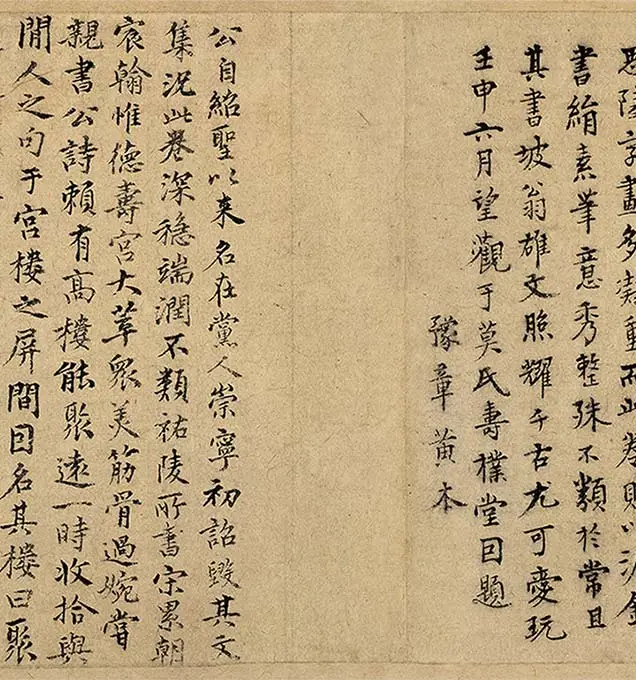 陵字畫多重而此卷則以泥金
書絹素筆意秀整殊不類於常且
其書坡翁雄文照耀千古尤可愛玩
壬申六月望觀于莫氏壽樸堂因題
豫章黃本
公自紹聖以来名在黨人崇寧初詔毀其文
集況此卷深穩端潤不類祐陵所書宋累朝
宸翰惟德壽宮大萃眾美筋骨過婉嘗
親書公詩賴有高樓能聚遠一時收拾與
閒人之句于宮樓之屏間因名其樓曰聚